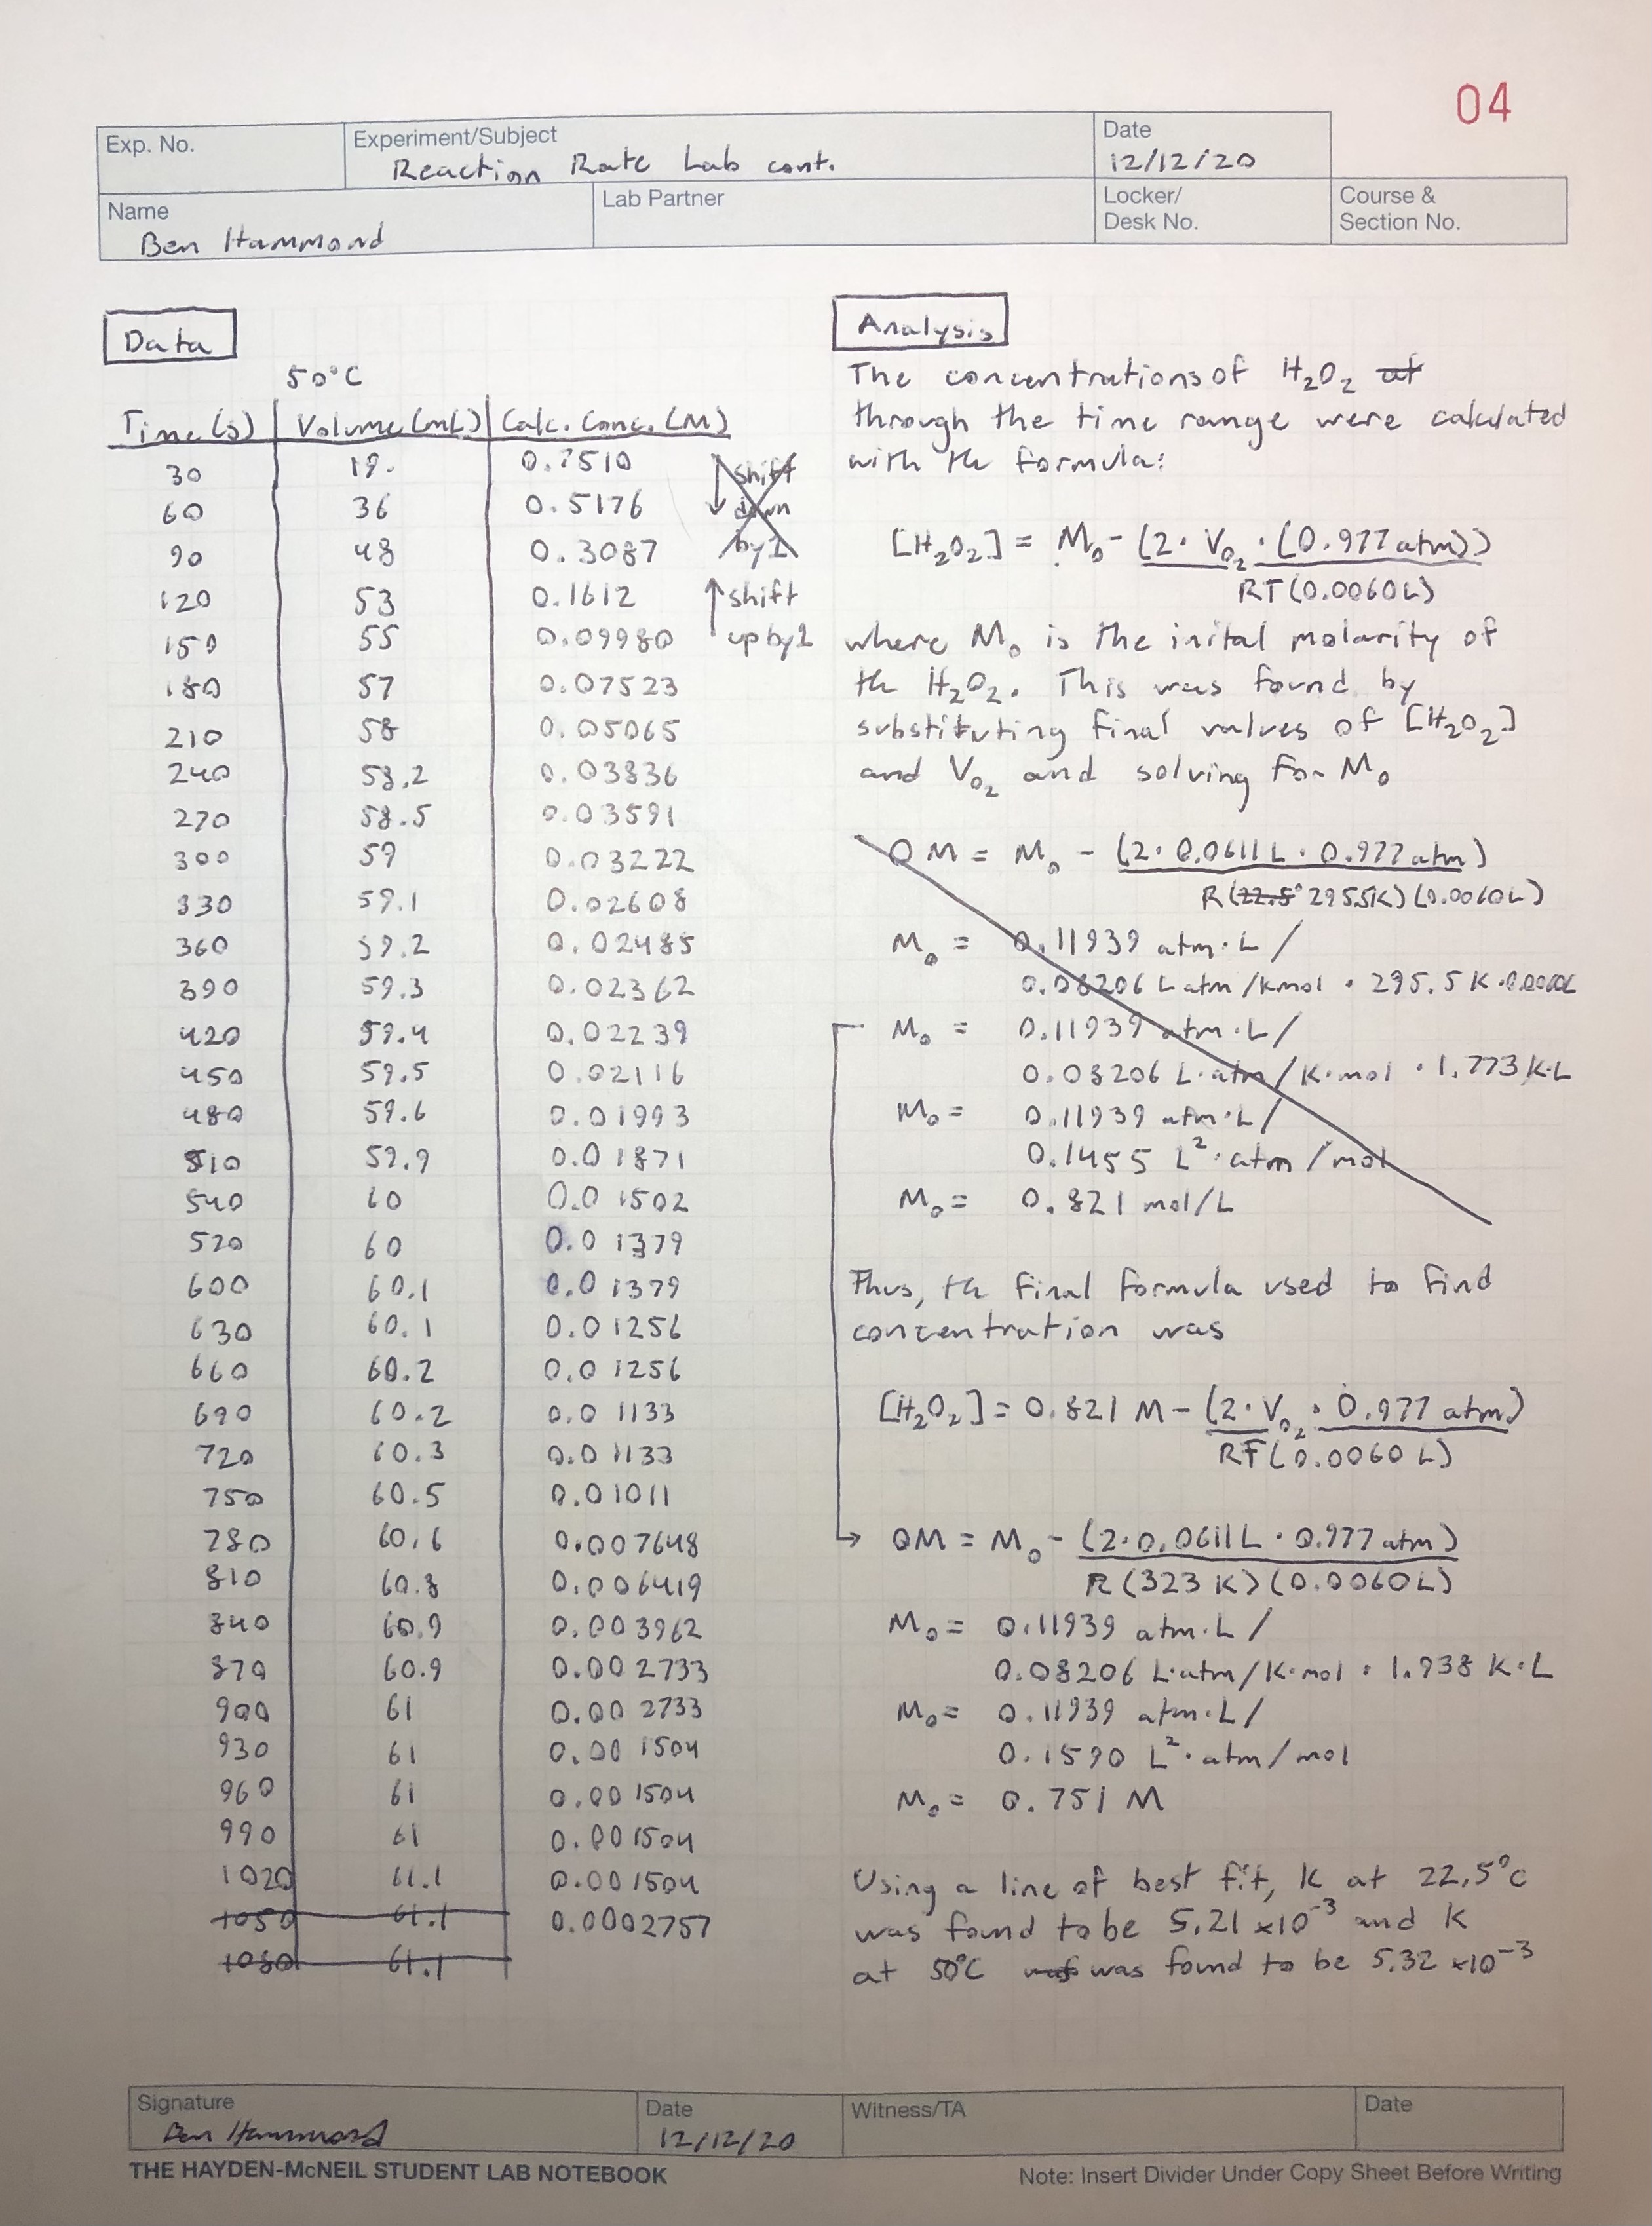 04
Exp. No.
Experiment/Subject
Reaction Rate Lab cont.
Date
12/12/20
Name
Ben Hammond
Lab Partner
Locker/
Desk No.
Course &
Section No.
Data
50°C
Time (s) Volume (mL) Calc. Conc. (M)
30 19. 0.7510
60 36 0.5176
90 48 0.3087
120 53 0.1612
150 55 0.09980
180 57 0.07523
210 58 0.05065
240 58.2 0.03836
270 58.5 0.03591
300 59 0.03222
330 59.1 0.02608
360 59.2 0.02485
390 59.3 0.02362
420 59.4 0.02239
450 59.5 0.02116
480 59.6 0.01993
510 59.9 0.01871
540 60 0.01502
520 60 0.01379
600 60.1 0.01379
630 60.1 0.01256
660 60.2 0.01256
690 60.2 0.01133
720 60.3 0.01133
750 60.5 0.01011
780 60.6 0.007648
810 60.8 0.006419
840 60.9 0.003962
870 60.9 0.002733
900 61 0.002733
930 61 0.001504
960 61 0.001504
990 61 0.001504
1020 61.1 0.001504
1050 61.1 0.0002757
1080 61.1
↓ shift
down
by 1
↑ shift
up by 1
Analysis
The concentrations of H₂O₂ at
through the time range were calculated
with the formula:
[H₂O₂] = M₀ - (2 · V_O₂ · (0.977 atm))
RT (0.0060L)
where M₀ is the inital molarity of
the H₂O₂. This was found by
substituting final values of [H₂O₂]
and V_O₂ and solving for M₀
0 M = M₀ - (2 · 0.0611 L · 0.977 atm)
R (22.5° 295.5K) (0.0060L)
M₀ = 0.11939 atm·L /
0.08206 L atm /K mol · 295.5 K · 0.0060L
M₀ = 0.11939 atm·L /
0.08206 L·atm / K·mol · 1.773 K·L
M₀ = 0.11939 atm·L /
0.1455 L²·atm / mol
M₀ = 0.821 mol/L
Thus, the final formula used to find
concentration was
[H₂O₂] = 0.821 M - (2 · V_O₂ · 0.977 atm)
RT (0.0060 L)
→ 0M = M₀ - (2·0.0611L · 0.977 atm)
R (323 K) (0.0060L)
M₀ = 0.11939 atm·L /
0.08206 L·atm/K·mol · 1.938 K·L
M₀ = 0.11939 atm·L /
0.1590 L²·atm/mol
M₀ = 0.751 M
Using a line of best fit, K at 22.5°C
was found to be 5.21 x10⁻³ and K
at 50°C was found to be 5.32 x10⁻³
Signature
Ben Hammond
Date
12/12/20
Witness/TA
Date
THE HAYDEN-McNEIL STUDENT LAB NOTEBOOK
Note: Insert Divider Under Copy Sheet Before Writing